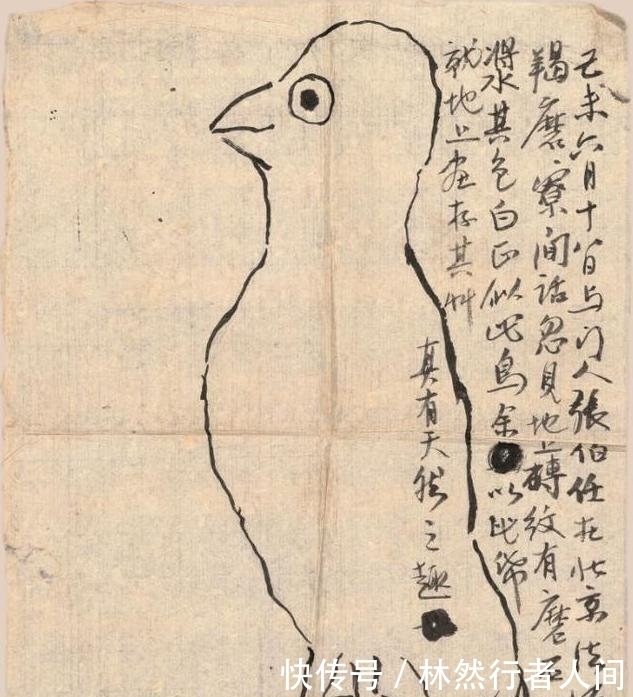 己未六月十八日与门人張伯任在北京法
羯磨寮間話忽見地上磚紋有磨
漿水其色白正似此鳥余以此帋
就地上画存其艸
真有天然之趣
快传号/林然行者人间